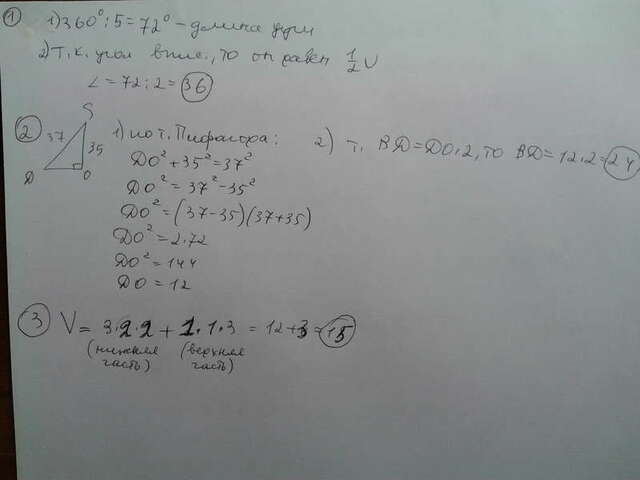 ① 1) 360° : 5 = 72° – длина дуги
2) Т.к. угол впис., то он равен 1/2 ∪
∠ = 72 : 2 = 36
② S 37 35 D O
1) по т. Пифагора:
DO² + 35² = 37²
DO² = 37² – 35²
DO² = (37 – 35)(37 + 35)
DO² = 2 · 72
DO² = 144
DO = 12
2) т. BD = DO · 2, то BD = 12 · 2 = 24
③ V = 3 · 2 · 2 + 1 · 1 · 3 = 12 + 3 = 15
(нижняя часть) (верхняя часть)